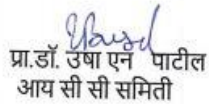 प्रा.डॉ. उषा एन पाटील
आय सी सी समिती